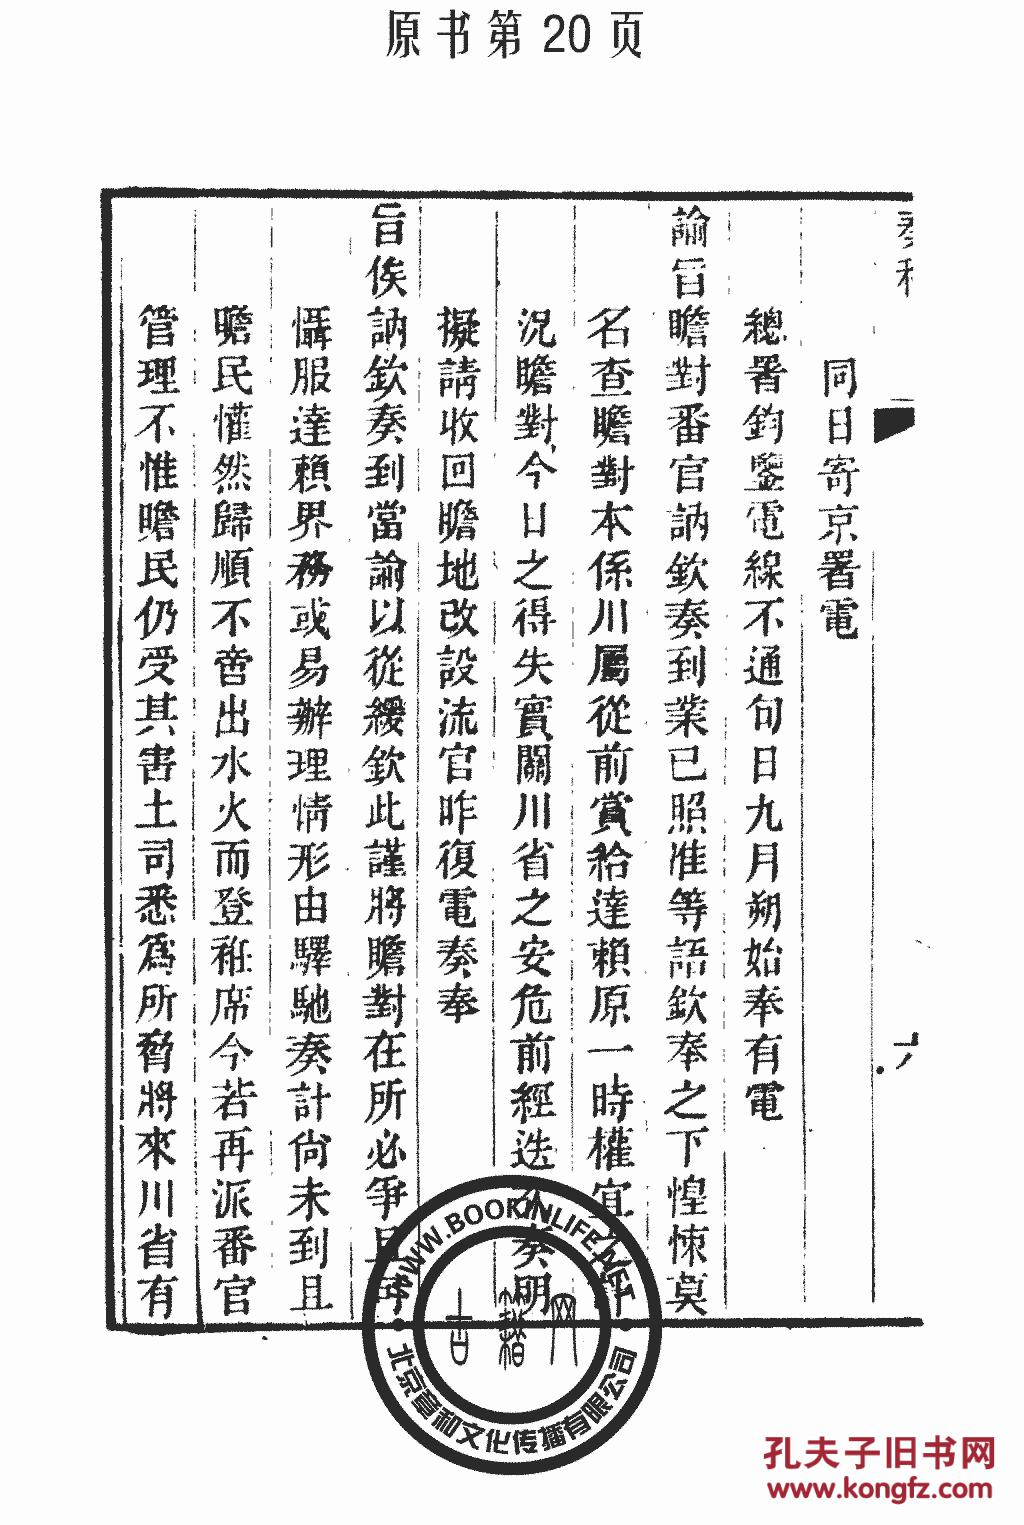 原书第20页
同日寄京署電
總署鈞鑒電線不通旬日九月朔始奉有電
諭旨瞻對番官訥欽奏到業已照准等語欽奉之下惶悚莫
名查瞻對本係川屬從前賞給達賴原一時權宜
況瞻對今日之得失實關川省之安危前經迭次奏明
擬請收回瞻地改設流官昨復電奏奉
旨俟訥欽奏到當諭以從緩欽此謹將瞻對在所必爭且可
懾服達賴界務或易辦理情形由驛馳奏計尚未到且
瞻民懽然歸順不啻出水火而登袵席今若再派番官
管理不惟瞻民仍受其害土司悉爲所脅將來川省有
WWW.BOOKINLIFE.NET
古籍网
北京章和文化传播有限公司
孔夫子旧书网
www.kongfz.com